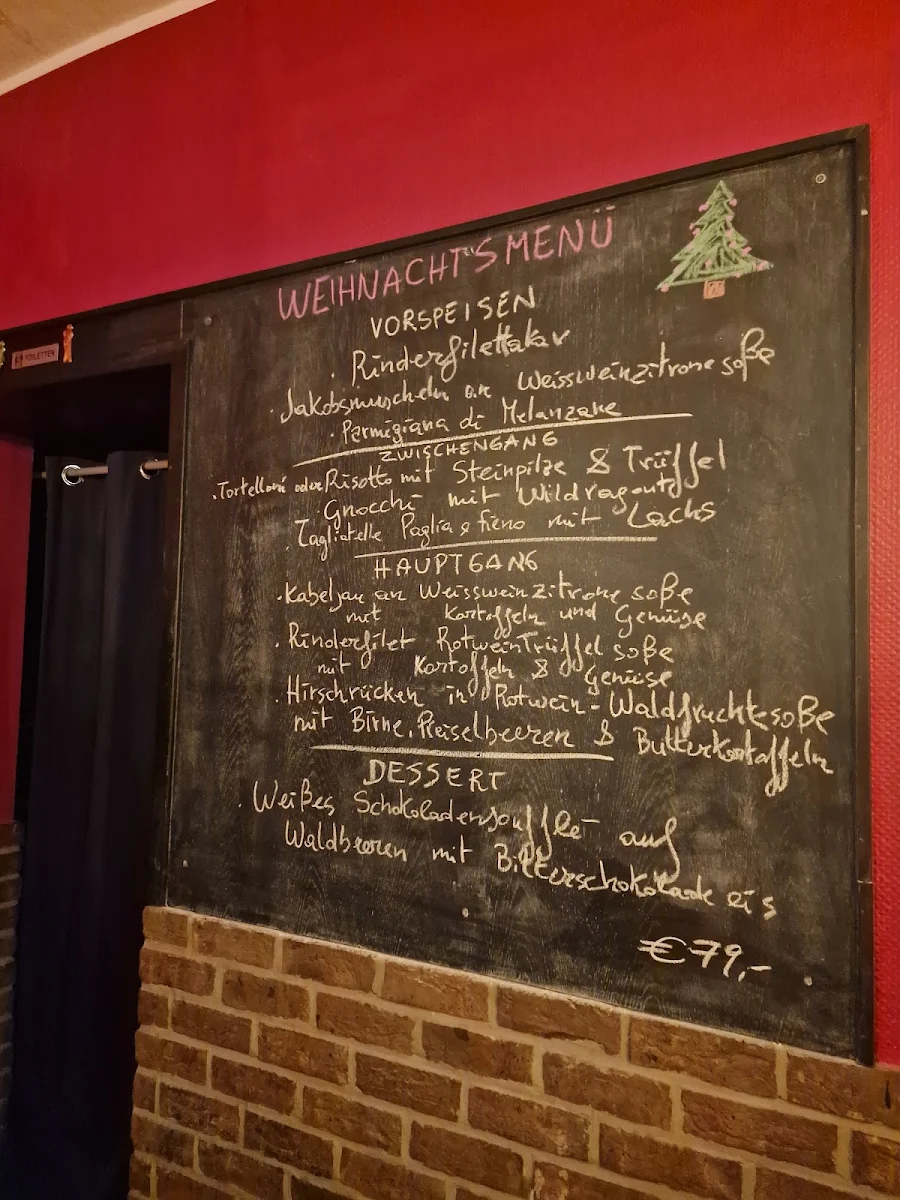 TOILETTEN
WEIHNACHT'S MENÜ
VORSPEISEN
· Rinderfilettatar
· Jakobsmuscheln an Weissweinzitronesoße
· Parmigiana di Melanzane
ZWISCHENGANG
· Tortelloni oder Risotto mit Steinpilze & Trüffel
· Gnocchi mit Wildragout
· Tagliatelle Paglia e fieno mit Lachs
HAUPTGANG
· Kabeljau an Weissweinzitronesoße
mit Kartoffeln und Gemüse
· Rinderfilet Rotweintrüffelsoße
mit Kartoffeln & Gemüse
· Hirschrücken in Rotwein-Waldfruchtesoße
mit Birne, Preiselbeeren & Butterkartoffeln
DESSERT
· Weißes Schokoladensouffle auf
Waldbeeren mit Bitterschokoladeeis
€ 79,-